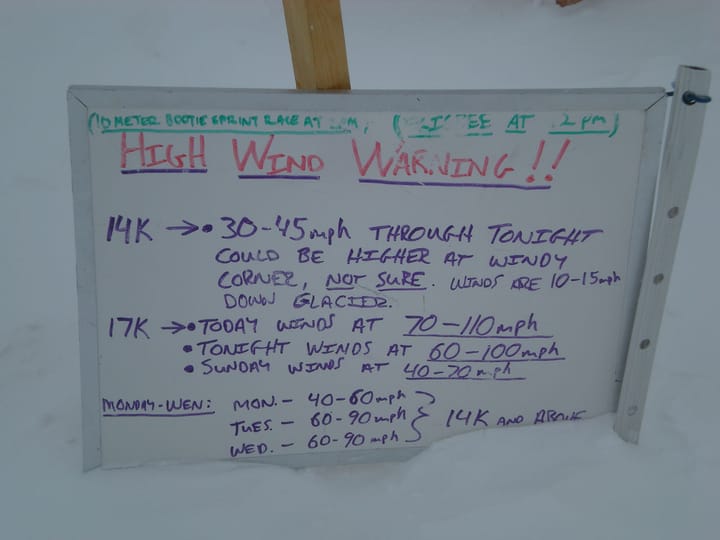 (10 METER BOOTIE SPRINT RACE AT PM, ( AT 2 PM)
HIGH WIND WARNING!!
14K → • 30-45mph THROUGH TONIGHT
COULD BE HIGHER AT WINDY
CORNER, NOT SURE. WINDS ARE 10-15mph
DOWN GLACIER.
17K → • TODAY WINDS AT 70-110mph
• TONIGHT WINDS AT 60-100mph
• SUNDAY WINDS AT 40-70mph
MONDAY-WEN: MON. - 40-60mph
TUES. - 60-90mph } 14K AND ABOVE
WED. - 60-90mph